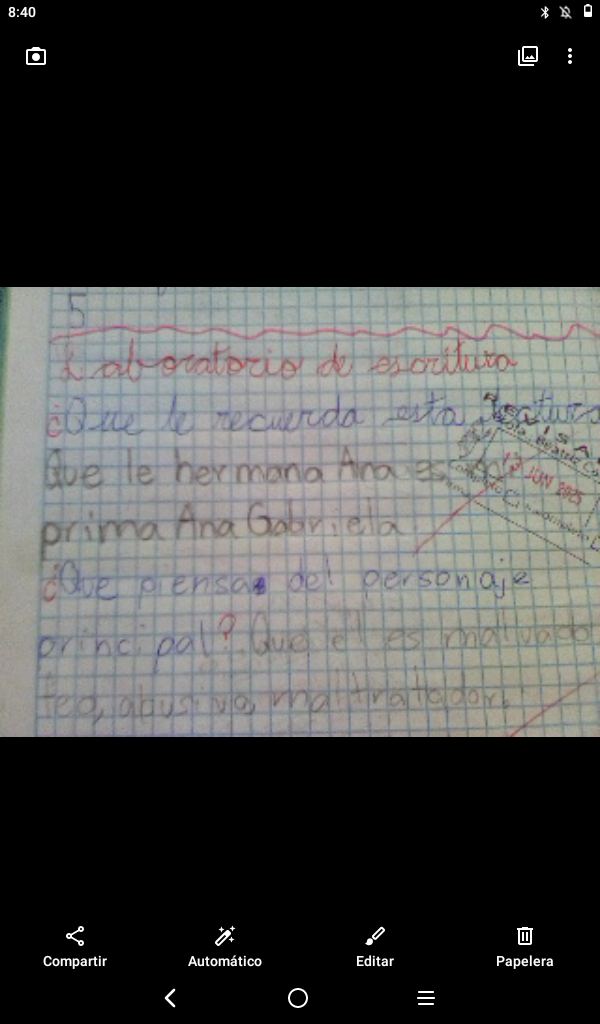 8:40
5
Laboratorio de escritura
¿Que le recuerda esta lectura
Que le hermana Ana es
prima Ana Gabriela.
¿Que piensas del personaje
principal? Que el es malvado
feo, abusivo, maltratador.
REVISA
13 JUN 2025
Compartir
Automático
Editar
Papelera